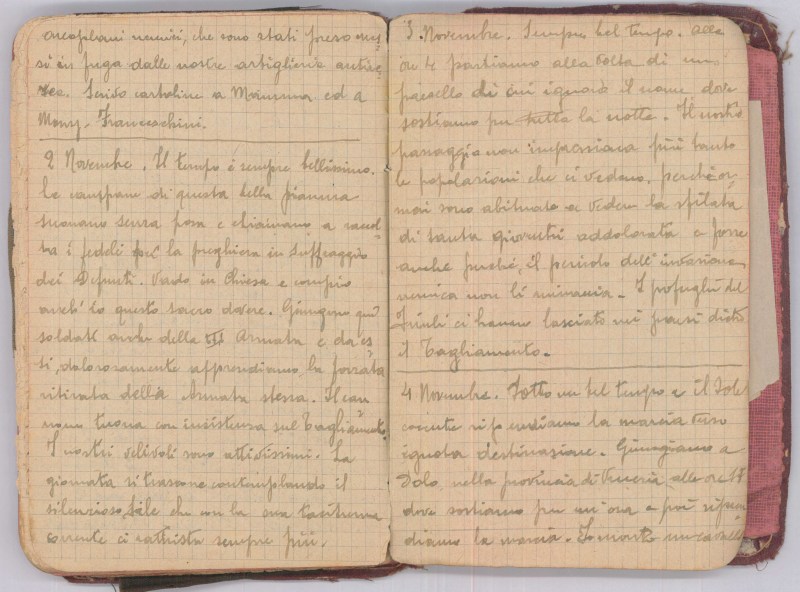 areoplani nemici, che sono stati presto mes-
si in fuga dalle nostre artiglierie antie-
ree. Scrivo cartoline a Mamma ed a
Mony. Franceschini.
2 Novembre. Il tempo è sempre bellissimo.
Le campane di questa bella pianura
suonano senza posa e chiamano a raccol-
ta i fedeli per la preghiera in suffraggio
dei Defunti. Vado in Chiesa e compio
anch'io questo sacro dovere. Giungono qui
soldati anche della III Armata e da es-
si, dolorosamente apprendiamo la forzata
ritirata della Armata stessa. Il can-
none tuona con insistenza sul Tagliamento.
I nostri velivoli sono attivissimi. La
giornata si trascorre contemplando il
silenzioso Sile che con la sua
corrente ci rattrista sempre più.
3 Novembre. Sempre bel tempo. Alle
ore 4 partiamo alla volta di un
paesello di cui ignoro il nome dove
sostiamo per tutta la notte. Il nostro
passaggio non impressiona più tanto
le popolazioni che ci vedono, perché or-
mai sono abituate a vedere la sfilata
di tanta gioventù addolorata e forse
anche perché, il pericolo dell'invasione
nemica non li minaccia. I profughi del
Friuli ci hanno lasciato nei paesi dietro
il Tagliamento.
4 Novembre. Sotto un bel tempo e il Sole
cocente riprendiamo la marcia verso
ignota destinazione. Giungiamo a
Dolo, nella provincia di Venezia alle ore
dove sostiamo per un'ora e poi ripren-
diamo la marcia. Io monto un cavallo